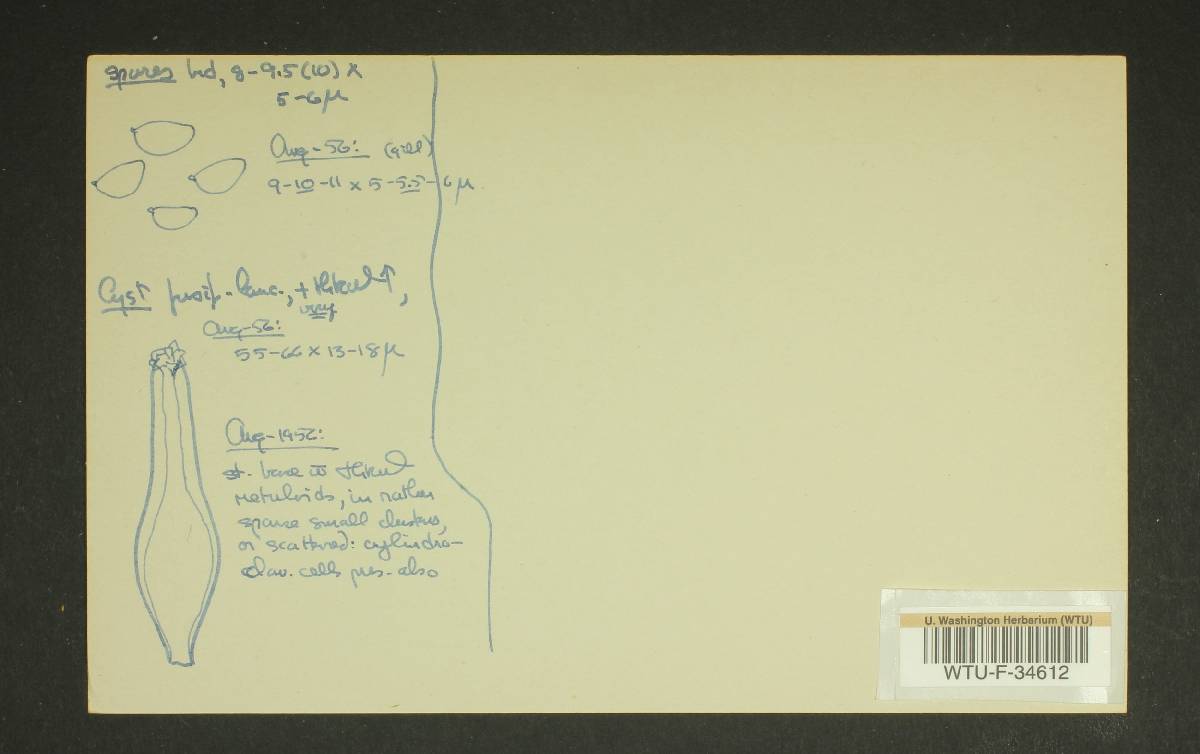 spores 8-9.5(10) x
5-6μ
Aug-56: (gill)
9-10-11 x 5-5.5-6μ
Cyst fusif.-lanc., + thkwl ↑,
very
Aug-56:
55-66 x 13-18μ
Aug-1956:
st. base w̄ thkwl
metuloids, in rather
sparse small clusters,
or scattered: cylindro-
clav. cells pres. also
U. Washington Herbarium (WTU)
WTU-F-34612